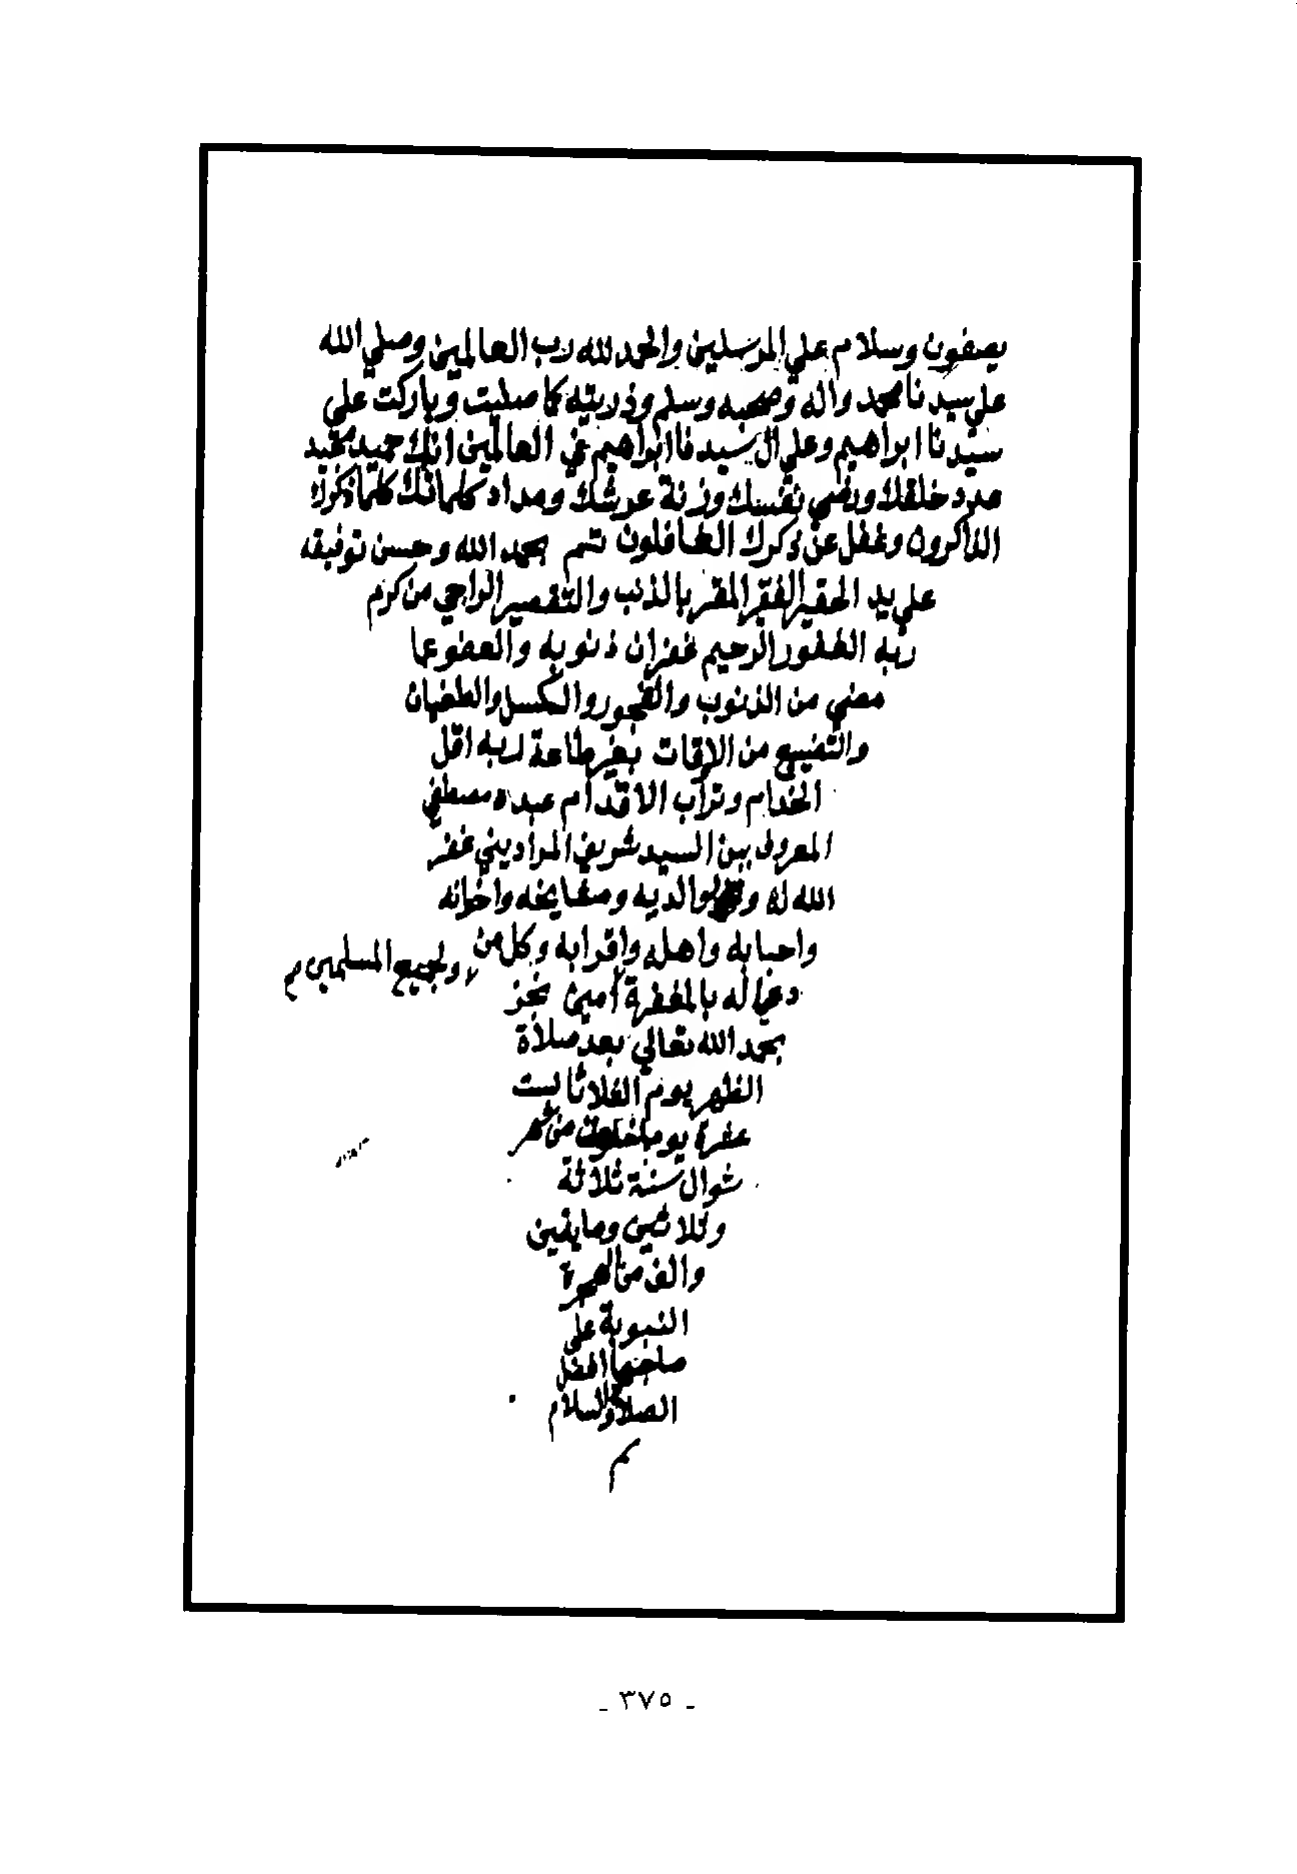 يصفون وسلام علي المرسلين والحمد لله رب العالمين وصلي الله
علي سيدنا محمد واله وصحبه وسلم وذريته كما صليت وباركت علي
سيدنا ابراهيم وعلي ال سيدنا ابراهيم في العالمين انك حميد مجيد
عدد خلقك ورضي نفسك وزنة عرشك ومداد كلماتك كلما ذكرك
الذاكرون وغفل عن ذكرك الغافلون تتم بحمد الله وحسن توفيقه
علي يد الحقير الفقير المقر بالذنب والتقصير الراجي من كرم
ربه الغفور الرحيم غفران ذنوبه والعفو عما
مضي من الذنوب والفجور والكسل والطغيان
والتضييع من الاوقات بغير طاعة لربه اقل
الخدام وتراب الاقدام عبده مصطفي
المعروف بين السيد شريف المراديني غفر
الله له ولوالديه ومشايخه واخوانه
واحبابه واهله واقرابه وكل من
ولجميع المسلمين م
دعي له بالمغفرة أمين نجز
بحمد الله تعالي بعد صلاة
الظهر يوم الثلاثا لست
عشرة يوما خلوت من شهر
شوال سنة ثلاثة
وثلاثين ومايتين
والف من الهجرة
النبوية علي
صاحبها افضل
الصلاة والسلام
تم
- ٣٧٥ -